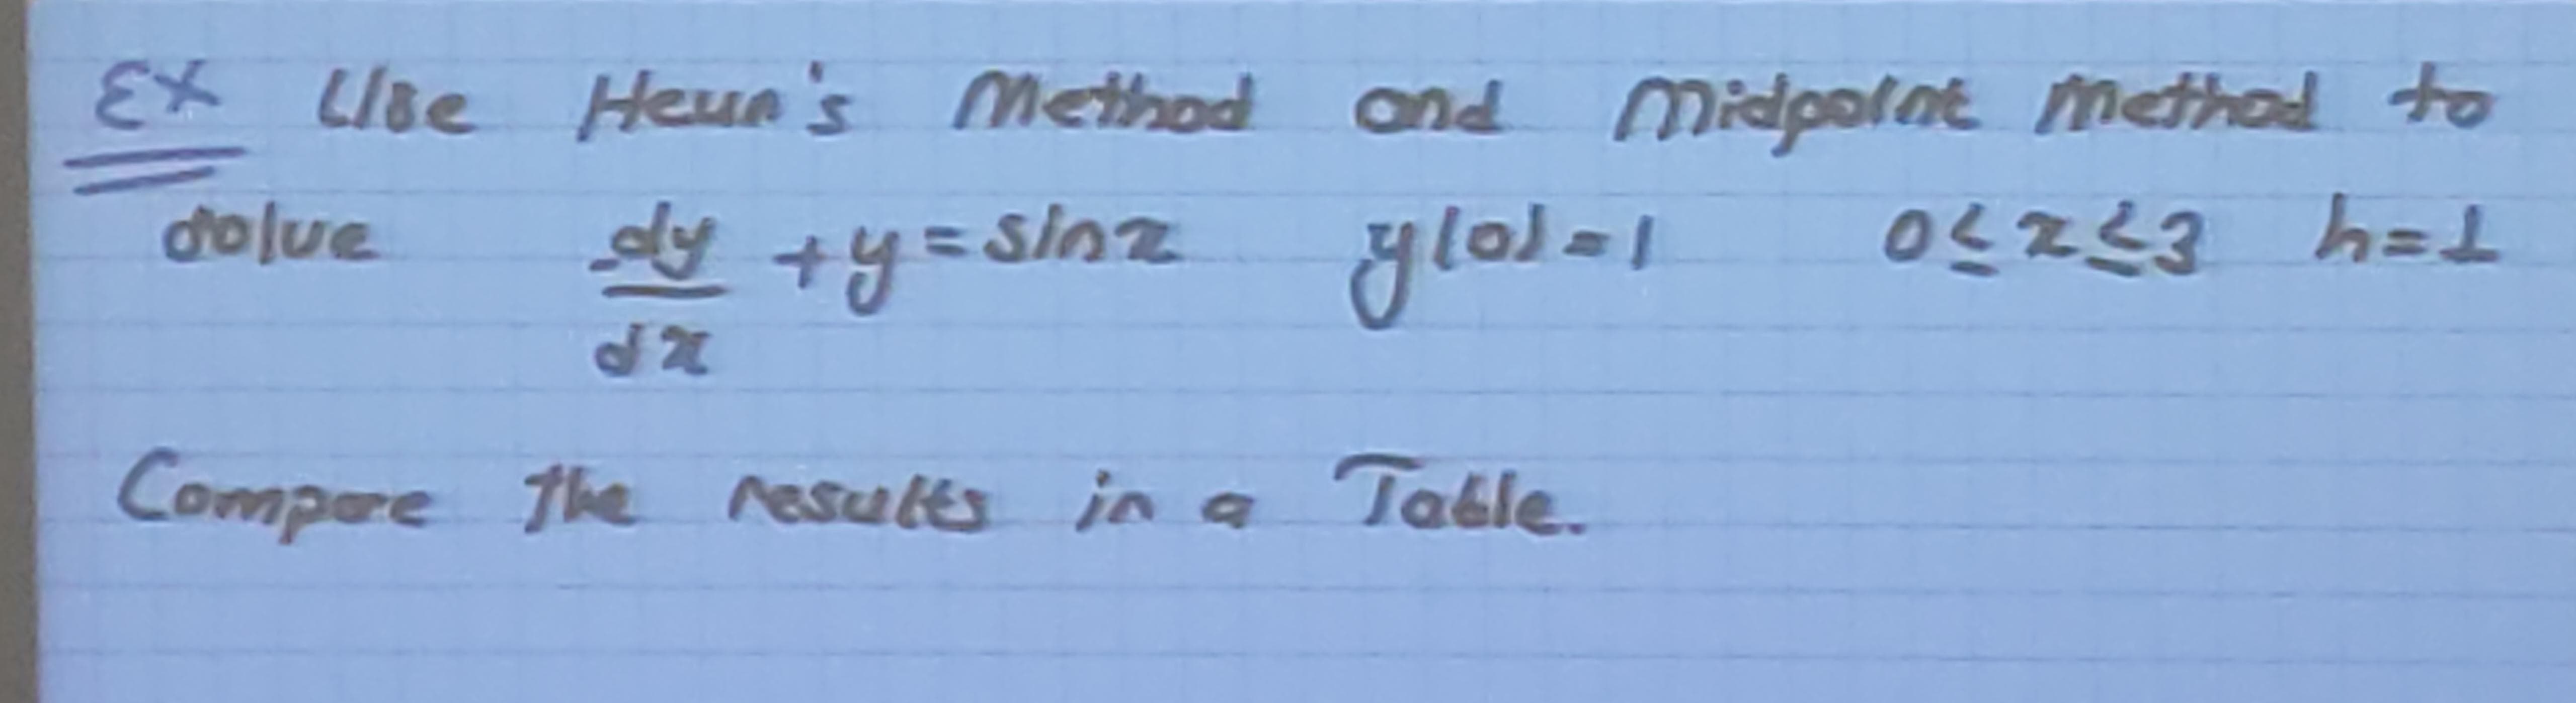 Ex Use Heun's Method and Midpoint Method to
solve dy/dx + y = sinx y(0)=1 0≤x≤3 h=1
Compare the results in a Table.